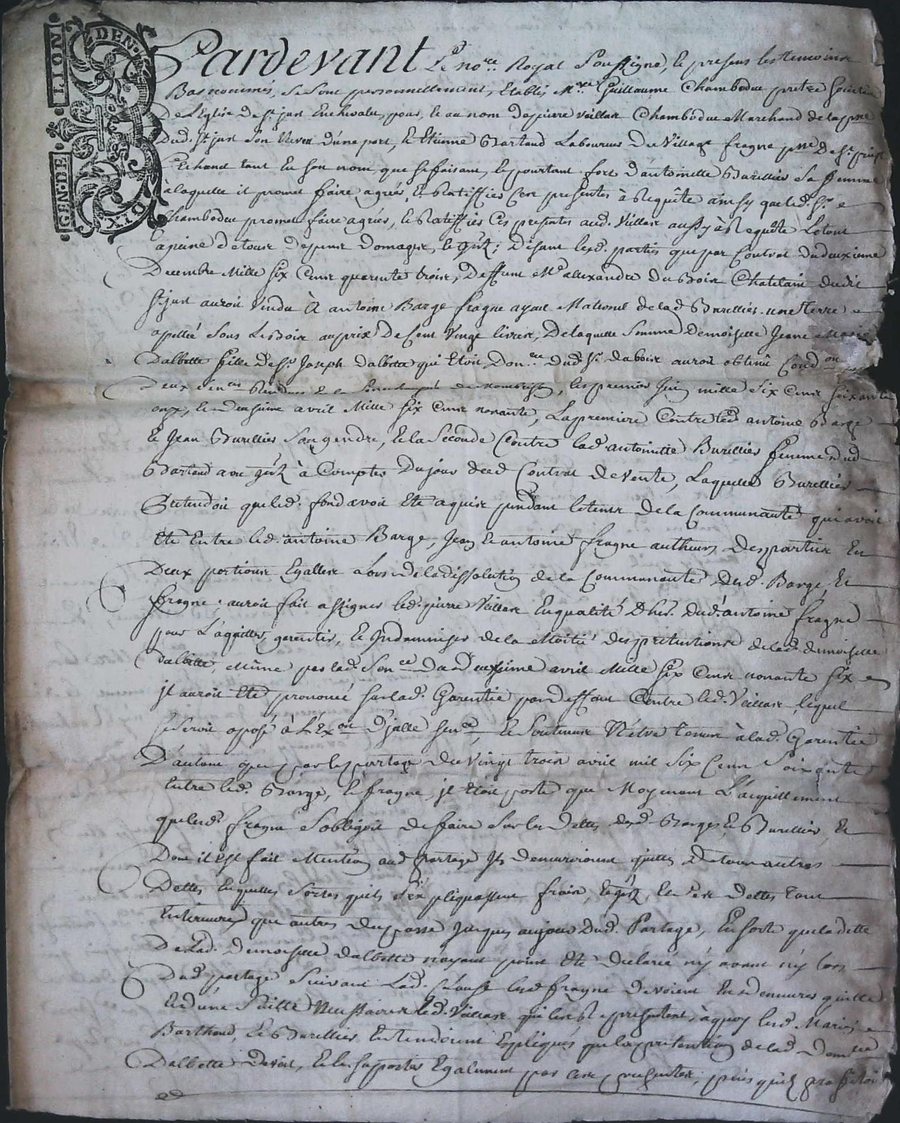 GEN. DE LION
DIX DEN.
Pardevant Le no.re Royal Soussigné, le presens les temoins
Bas nommés, se sont personnellement, Etablis M.re Guillaume Chambodue prestre
De L'Eglise de S.t just Enchevalu, pour, le au nom de pierre vaillase Chambodue Marchand de la p.sse
Dud. S.t just son Neveu d'une part, le Etienne Bartaud Laboureur Du Village fragne p.sse De S.t
tant En son nom, que se faisant, le portant fort d'antoinette Burellier sa femme
a laquelle il promet faire agréer, le Ratiffier Ces presentes à Requête ainsy que led. S.r
Chambodue promet faire agréer, le Ratiffier Ces presentes aud. Vaillase aussy à Requête Le tout
a peine de tous despens domages, le ; disant les d. parties que par Contrat du deuxieme
Decembre Mille Six Cens quarente trois, Deffunt M.e allexandre Duboir Chatelain dud.
S.t just auroit vendu à antoine Barge fragne ayeul Maternel de lad. Burellier une terre
apellée Sous Le boir au prix de Cent Vingt livres, De laquelle somme Demoiselle Jeane Marie
Dalbette fille de S.r Joseph Dalbette qui Etoit Don.re dud. S.r duboir auroit obtenu Cond.on
Deux Rendues , les premier Juin mille Six Cens Soixante
onze, le deuxieme avril Mille Six Cens nonante, La premiere Contre led. antoine Barge
le Jean Burellier Son gendre, le la Seconde Contre lad. antoinette Burellier femme dud.
Bartaud avec à Compter Du jour dud. Contrat de vente, Laquelle Burellier
pretendoit que led. fond avoit Eté acquis pendant le tems de la Communauté qui avoit
Eté Entre led. antoine Barge, Jean le antoine fragne autheurs Des parties En
Deux portions Egalles alors de la dissolution de la Communauté Dud. Barge, le
fragne ; auroit fait assigner led. pierre Vaillase En qualité d'her. dud. antoine fragne
pour L'aquitter, garentir, le Indamniser de la Moitié des pretentions de lad. demoiselle
Dalbette Même par lad. Son.ce du deuxieme avril Mille Six Cens nonante Six
il auroit Eté prononcé sur lad. Garentie par deffaut Contre led. Vaillase, lequel
se seroit oposé à L'Ex.on d'jcelle Sen.ce, le Soutenu N'être tenu à lad. Garentie
D'autant que par le partage du vingt trois avril mil Six Cens Soixante
Entre led. Barge, le fragne, il Etoit porté que Moyenant L'acquittement
que led. fragne S'obligeoit de faire Sur les Dettes desd. Barge le Burellier, le
Dont il est fait Mention aud. partage Ils demeureroient quittes De tous autres
Dettes le quelles Sortes qu'ils S'expliquassent frais, le Dettes tant
Enterieures que autres du passé Jusques aujour dud. Partage, En sorte que la dette
De Lad. demoiselle Dalbette n'ayant point Eté declarée n'y avant n'y lors
Dud. partage Suivant Lad. Clause led. fragne devoient En demeurer quitte
le d'une Suitte Nessaire led. Vaillase qui les represente, à quoy lesd. Mariés
Barthaud, le Burellier, Entendoient Expliquer que la pretention de lad. Dem.elle
Dalbette devoit, Etre Suportée Egalement par ces presentes, puis qu'ils